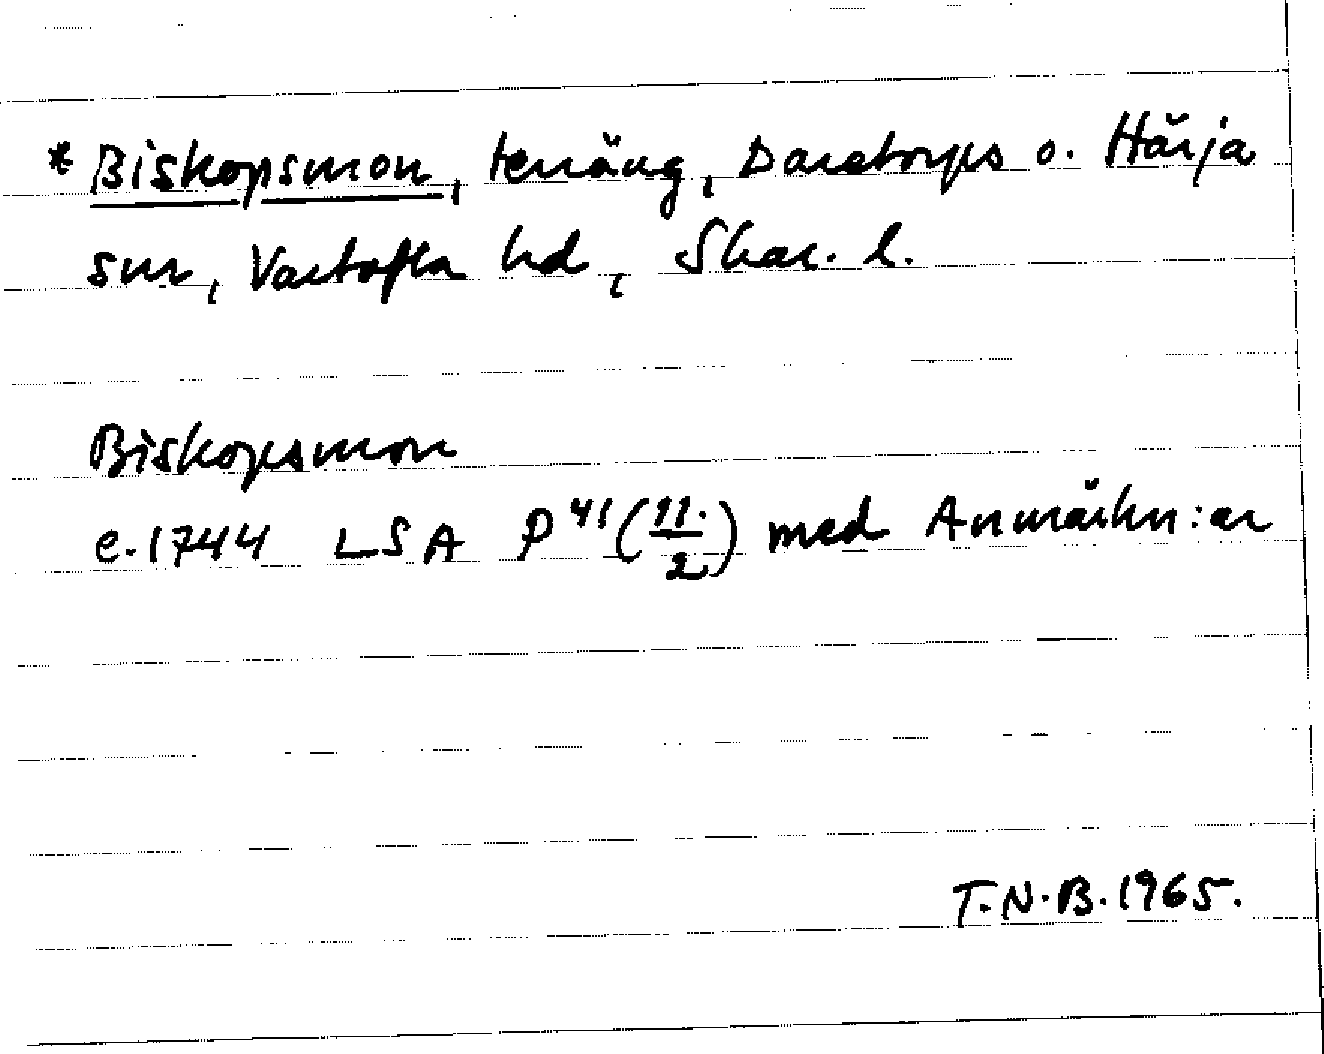 * Biskopsmon, terräng, Daretorps o. Härja
snr, Vartofta hd, Skar. l.
Biskopsmon
e. 1744 LSA P41 (11./2) med Anmärkn:ar
T.N.B. 1965.